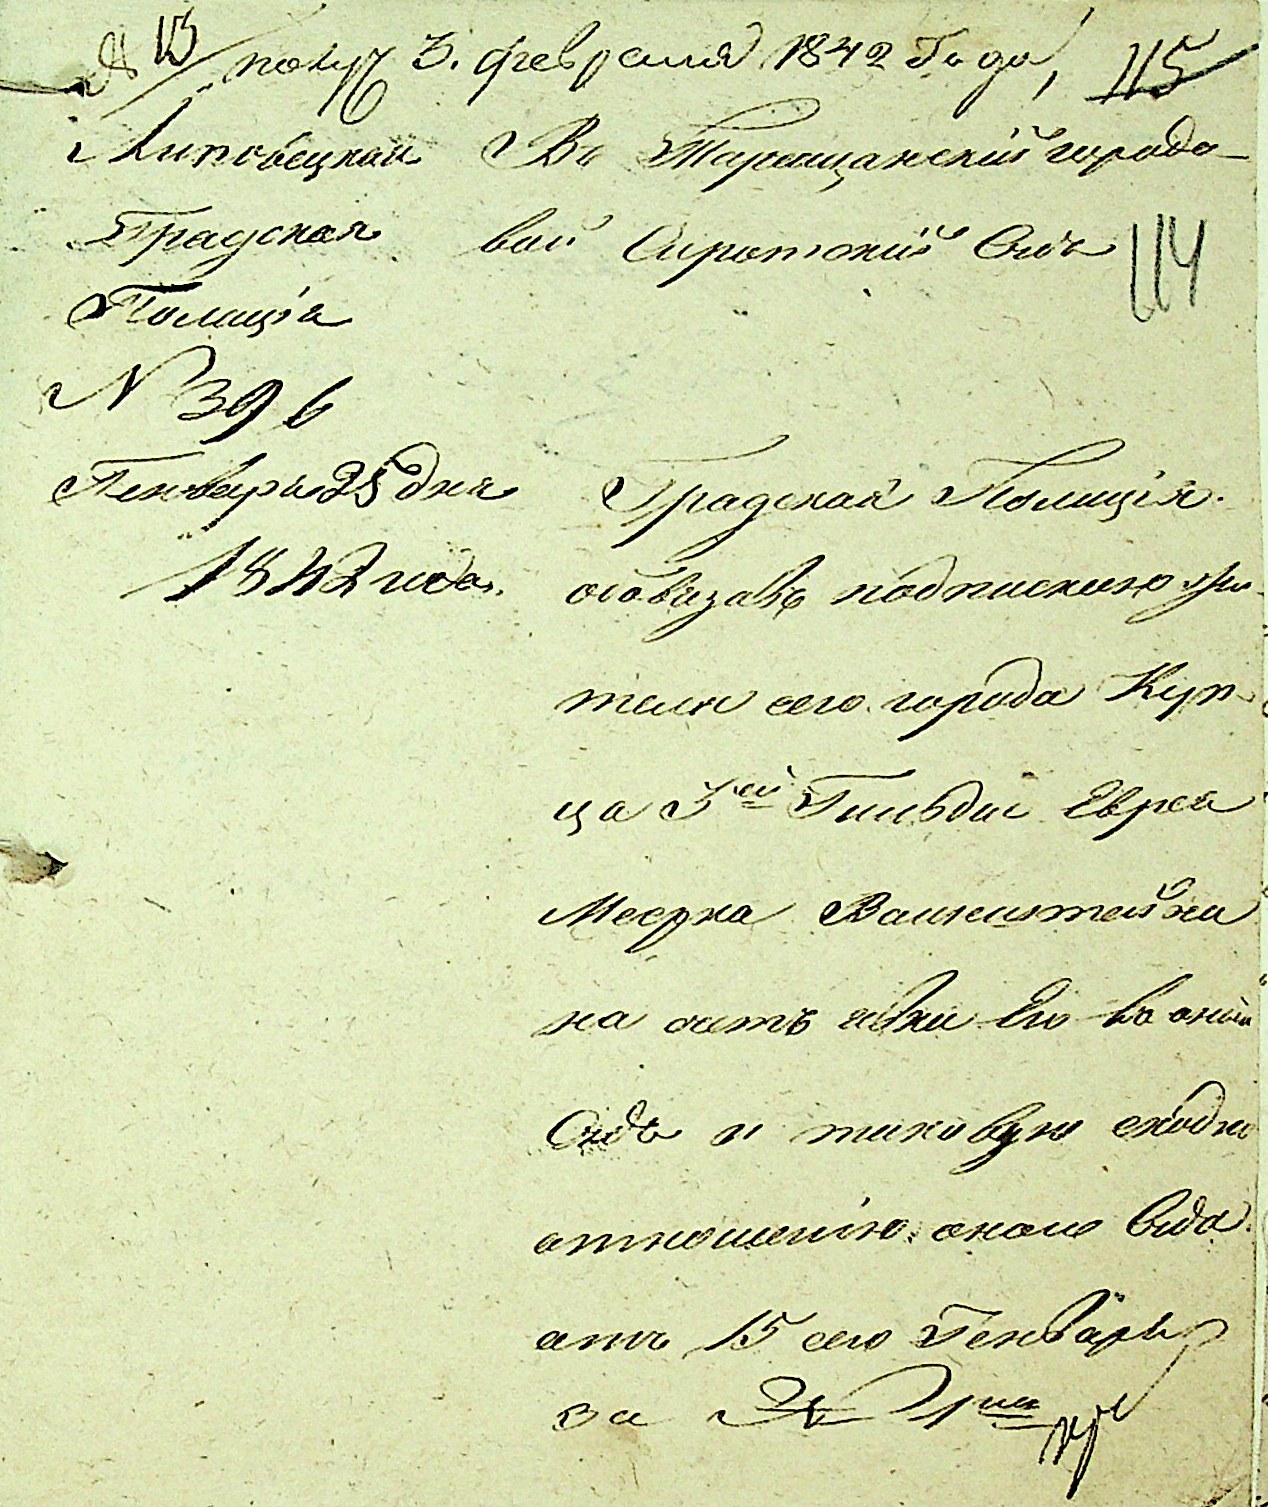 № 13 получ 3. февраля 1842 Года, 115
Липовецкая
Градская
Полиція
N 396
Генваря 25 дня
1842 года.
Во Таращанскій городо-
вой Сиротскій Судъ
114
Градская Полиція
обязавъ подпискою жи-
теля сего города Куп-
ца 3ей Гильдіи Еврея
Меерка Ваинштейна
на счетъ явки Его во оный
Судъ и таковую
отношенію оного Суда
отъ 15 сего Генваря
за № 1мъ